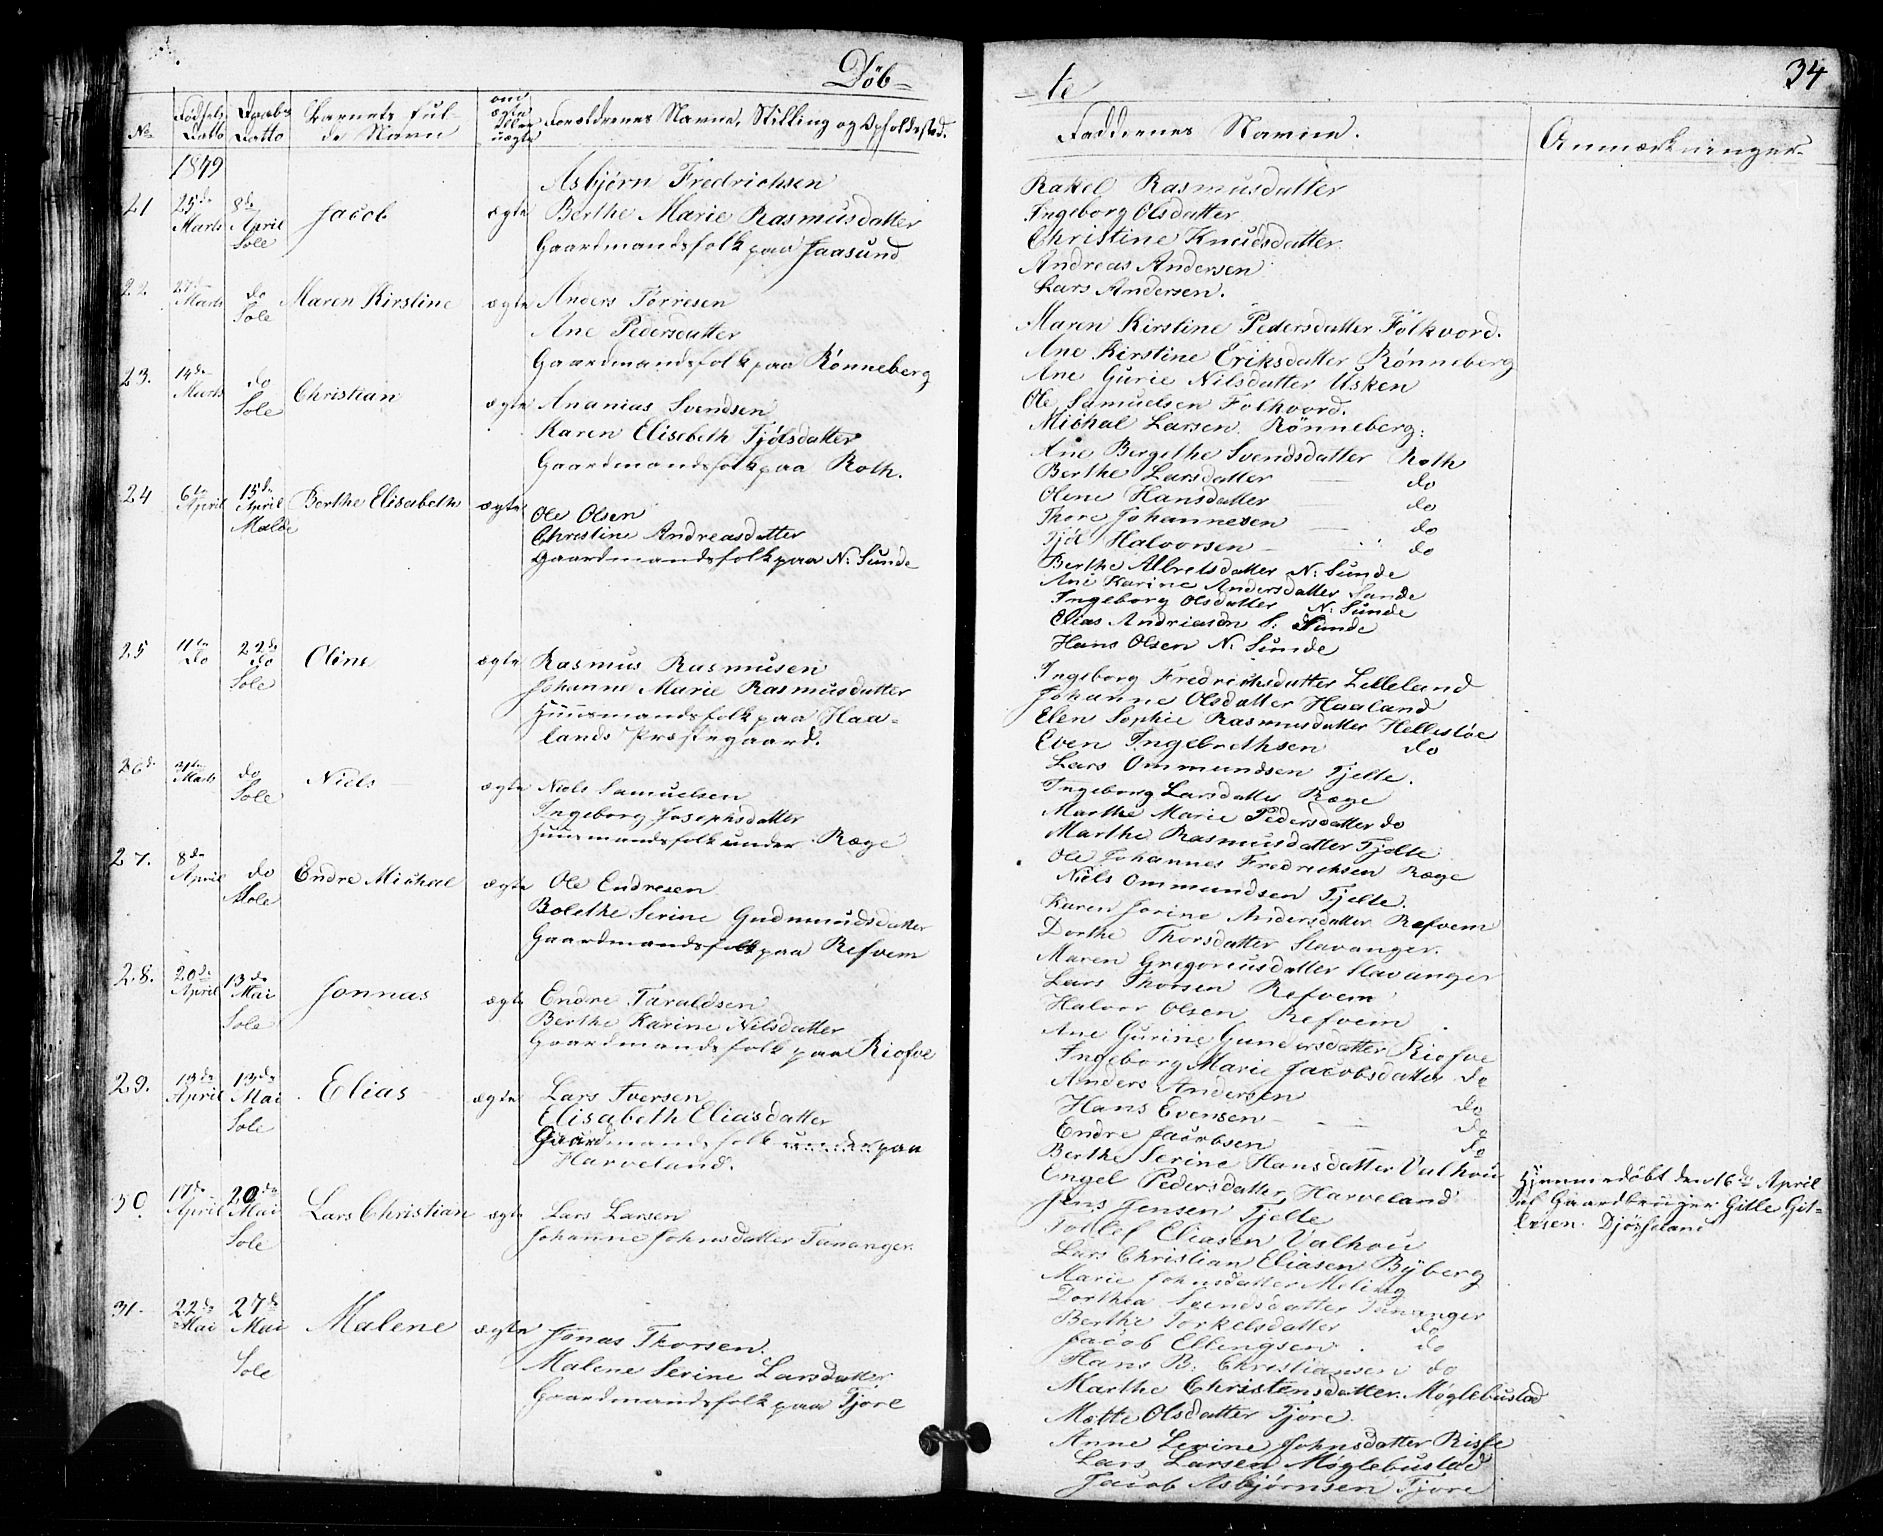 Döb-
No
Fødsels Datto
Daabs Datto
Barnets ful-
de Navn
om ægte eller uægte
Forældrenes Navne, Stilling og Opholdssted.
1849
Asbjørn Fredrichsen
21 25de Marts 8de April Sole Jacob ægte Berthe Marie Rasmusdatter
Gaardmandsfolk paa Jaasund
22. Marts do Sole Maren Kirstine ægte Anders Torresen
Ane Pedersdatter
Gaardmandsfolk paa Rønneberg
23. 14de Marts do Sole Christian ægte Ananias Svendsen
Karen Elisebeth Tjølsdatter
Gaardmandsfolk paa Roth.
24 6te April 15de April Malde Berthe Elisabeth ægte Ole Olsen
Christine Andreasdatter
Gaardmandsfolk paa N: Sunde
25 11te do 22de do Sole Oline ægte Rasmus Rasmusen
Johanne Marie Rasmusdatter
Huusmandsfolk paa Haa-
lands Præstegaard.
26de Marts do Sole Niels ægte Niels Samuelsen
Ingeborg Josephsdatter
Huusmandsfolk under Ræge
27. 8de April do Sole Endre Michael ægte Ole Endresen
Bolethe Serine Gudmundsdatter
Gaardmandsfolk paa Refvem
28. 20de April 13de Mai Sole Jonnas ægte Endre Taraldsen
Berthe Karine Nilsdatter
Gaardmandsfolk paa Riofve
29. 13de April 13de Mai Sole Elias ægte Lars Iversen
Elisabeth Eliasdatter
Gaardmandsfolk under paa
Harveland.
30. 17de April 20de Mai Sole Lars Christian ægte Lars Larsen
Johanne Johnsdatter Tananger.
31. 22de Mai 27de Mai Sole Malene ægte Jonas Thorsen.
Malene Serine Larsdatter
Gaardmandsfolk paa Tjore
-te
34
Faddernes Navne.
Anmærkninger.
Rakel Rasmusdatter
Ingeborg Olsdatter
Christine Knudsdatter.
Andreas Andersen
Lars Andersen.
Maren Kirstine Pedersdatter Folkvord.
Ane Kirstine Eriksdatter Rønneberg
Ane Gurie Nilsdatter Usken
Ole Samuelsen Folkvord.
Michal Larsen Rönneberg:
Ane Bergithe Svendsdatter Roth
Berthe Larsdatter do
Olene Hansdatter do
Thore Johannesen do
Tjöl Halvorsen do
Berthe Albretsdatter N: Sunde
Ane Karine Andersdatter Sunde
Ingeborg Olsdatter N: Sunde
Elias Andreasen S: Sunde
Hans Olsen N: Sunde
Ingeborg Fredrichsdatter Lelleland
Johanne Olsdatter Haaland
Elen Sophie Rasmusdatter Hellestöe
Even Ingebrethsen do
Lars Ommundsen Tjelte.
Ingeborg Larsdatter Ræge
Marthe Marie Pedersdatter do
Marthe Rasmusdatter Tjelte
Ole Johannes Fredrichsen Ræge
Niels Ommundsen Tjelte.
Karen Jorine Andersdatter Refvem
Dorthe Thorsdatter Stavanger.
Maren Gregoriusdatter Stavanger
Lars Thorsen Refvem
Halvor Olsen Refvem
Ane Gurine Gundersdatter Riofve
Ingeborg Marie Jacobsdatter do
Anders Andersen do
Hans Evensen do
Endre Jacobsen do
Berthe Serine Hansdatter Valhou
Engel Pedersdatter Harveland
Jens Jensen Tjelte
Eliasen Valhou
Lars Christian Eliasen Byberg
Marie Johnsdatter Meling
Dorthea Svendsdatter Tananger
Berthe Torkelsdatter do
Jacob Ellengsen do
Hans B: Christiansen do
Marthe Christensdatter Møglebustad
Mette Olsdatter Tjore.
Anne Serine Johnsdatter Risse
Lars Larsen Møglebustad
Jacob Asbjørnsen Tjore
Hjemmedøbt den 16de April
af Gaardbruger Gitle Git-
lesen. Djøsseland